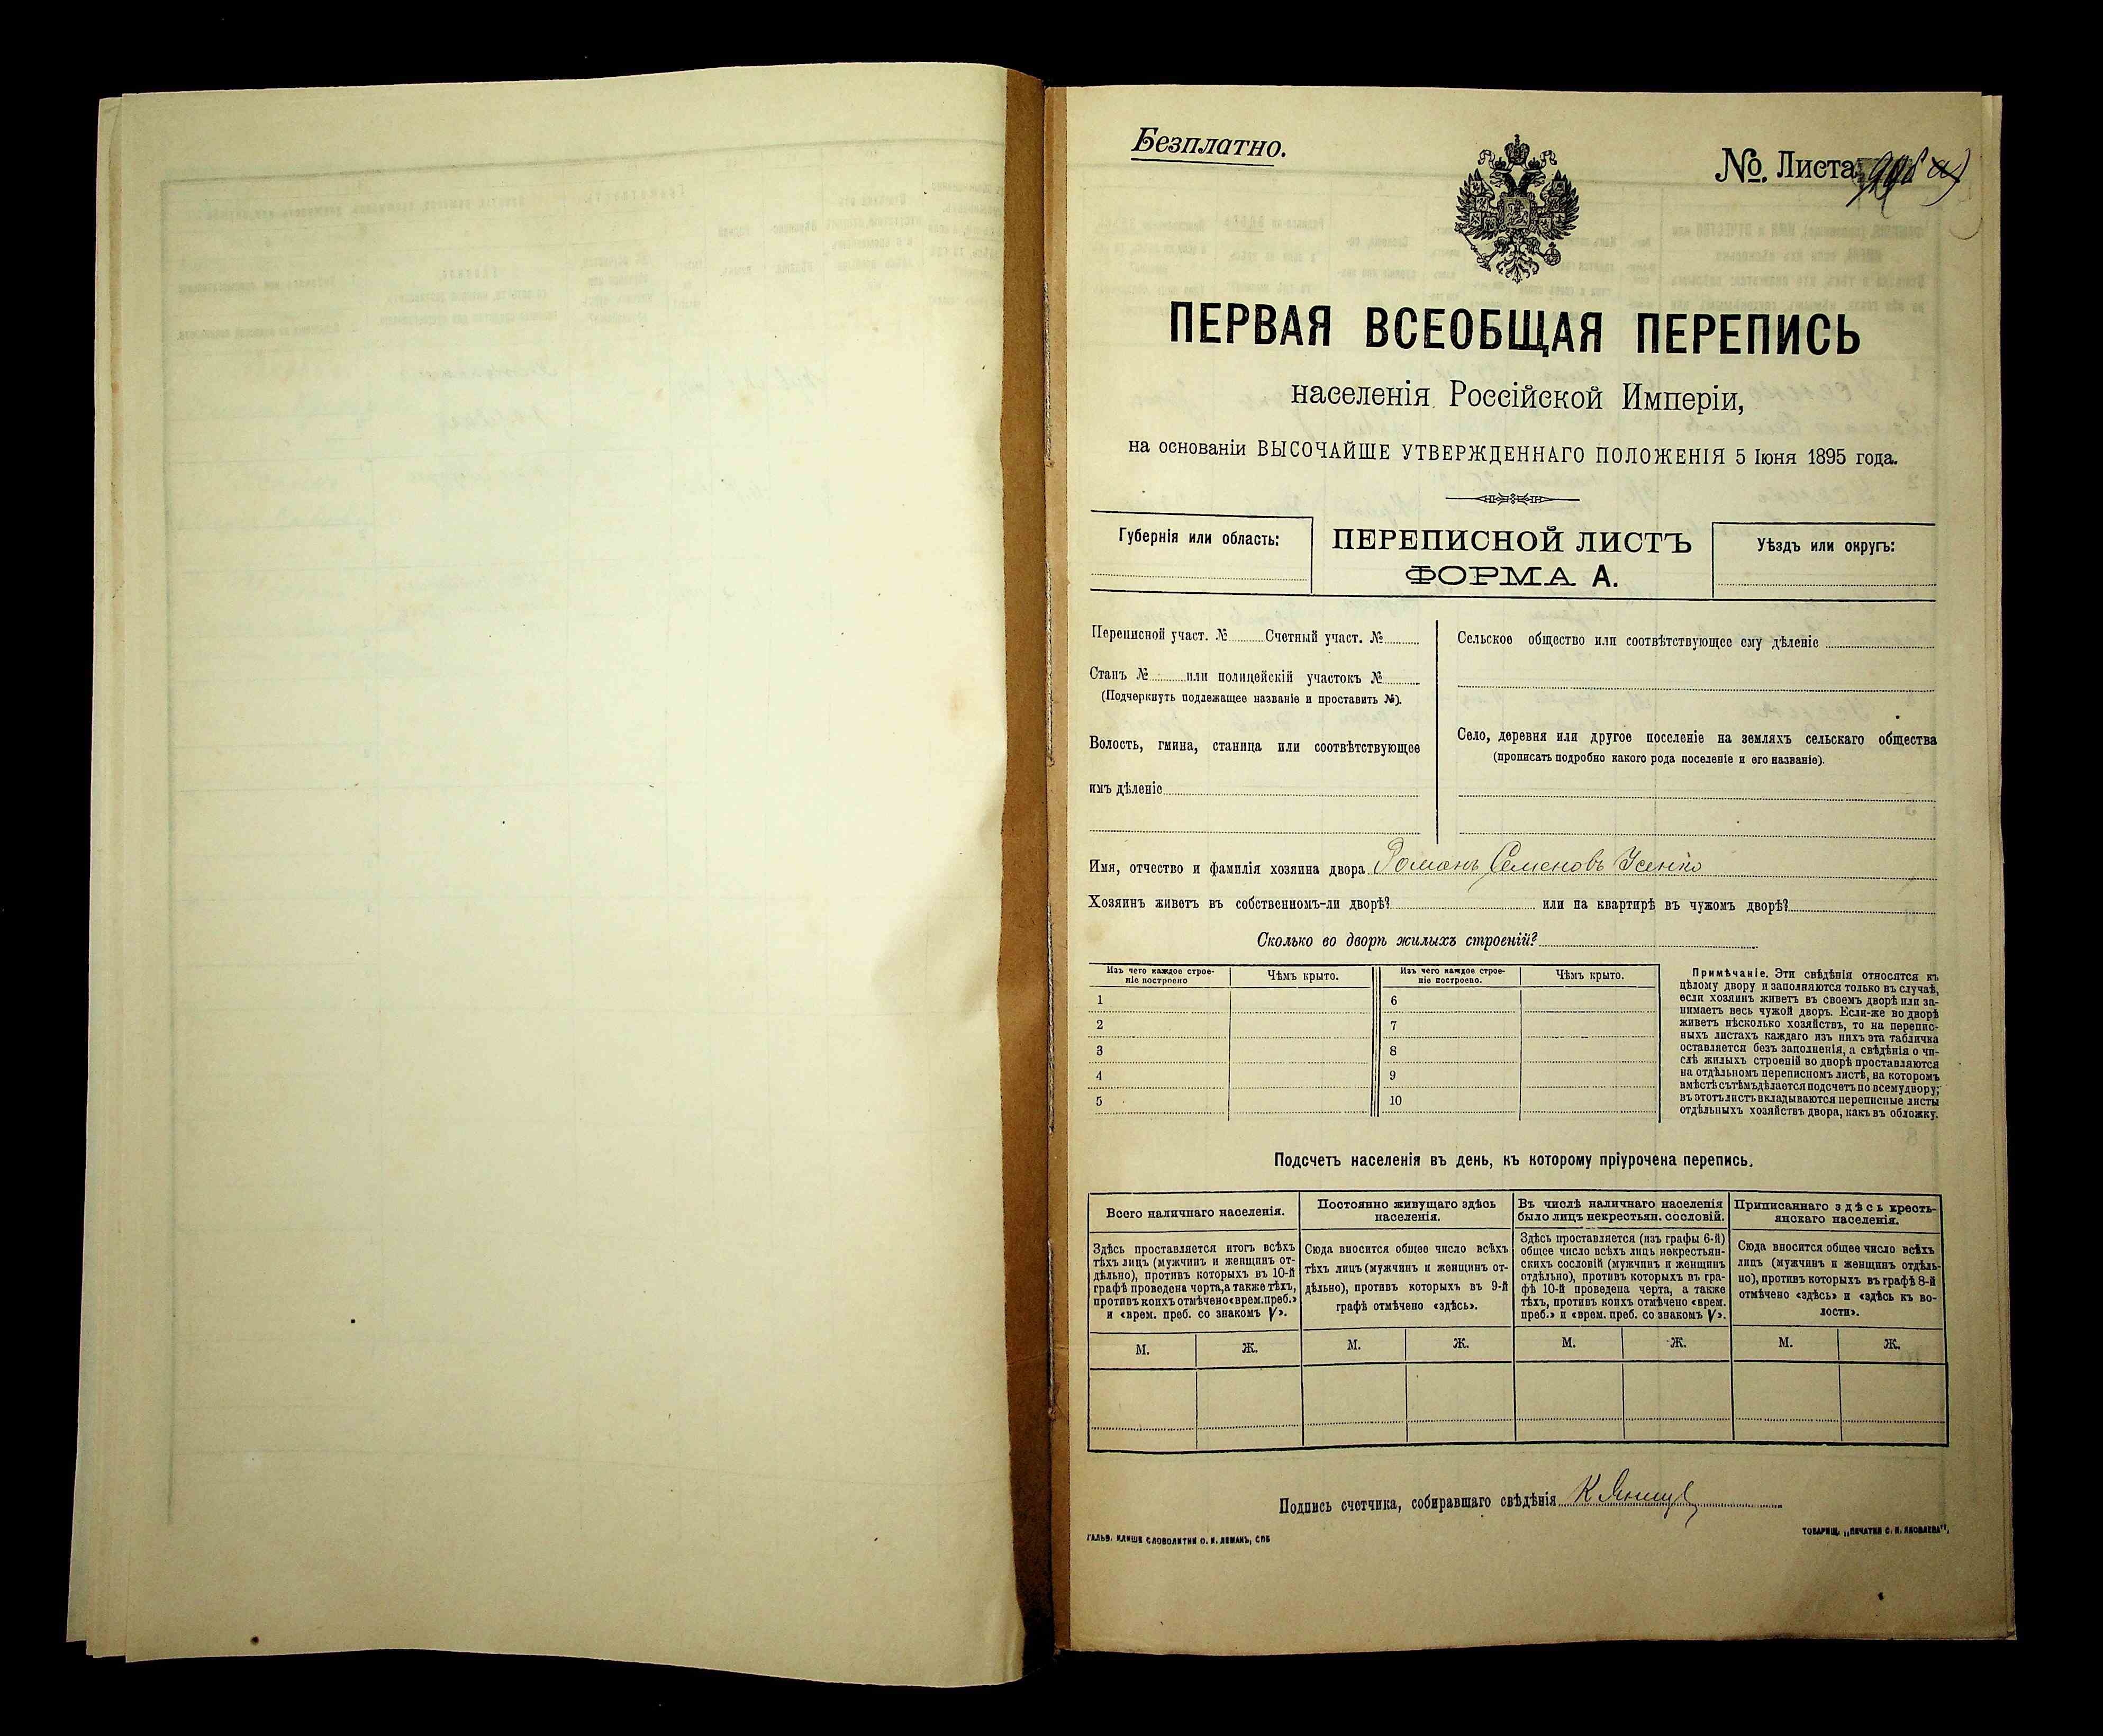 Безплатно.
№. Листа
ПЕРВАЯ ВСЕОБЩАЯ ПЕРЕПИСЬ
населенія Россійской Имперіи,
на основаніи ВЫСОЧАЙШЕ УТВЕРЖДЕННАГО ПОЛОЖЕНІЯ 5 Іюня 1895 года.
Губернія или область:
ПЕРЕПИСНОЙ ЛИСТЪ
ФОРМА А.
Уѣздъ или округъ:
Переписной участ. № Счетный участ. №
Станъ № или полицейскій участокъ №
(Подчеркнуть подлежащее названіе и проставить №).
Волость, гмина, станица или соотвѣтствующее
имъ дѣленіе
Сельское общество или соотвѣтствующее ему дѣленіе
Село, деревня или другое поселеніе на земляхъ сельскаго общества
(прописать подробно какого рода поселеніе и его названіе).
Имя, отчество и фамилія хозяина двора Романъ Семеновъ Усенко
Хозяинъ живетъ въ собственномъ-ли дворѣ? или на квартирѣ въ чужомъ дворѣ?
Сколько во дворѣ жилыхъ строеній?
Изъ чего каждое строе-
ніе построено
Чѣмъ крыто.
Изъ чего каждое строе-
ніе построено.
Чѣмъ крыто.
1 6
2 7
3 8
4 9
5 10
Примѣчаніе. Эти свѣдѣнія относятся къ
цѣлому двору и заполняются только въ случаѣ,
если хозяинъ живетъ въ своемъ дворѣ или за-
нимаетъ весь чужой дворъ. Если-же во дворѣ
живетъ нѣсколько хозяйствъ, то на перепис-
ныхъ листахъ каждаго изъ нихъ эта табличка
оставляется безъ заполненія, а свѣдѣнія о чи-
слѣ жилыхъ строеній во дворѣ проставляются
на отдѣльномъ переписномъ листѣ, на которомъ
вмѣстѣ съ тѣмъ дѣлается подсчетъ по всему двору;
въ этотъ листъ вкладываются переписные листы
отдѣльныхъ хозяйствъ двора, какъ въ обложку.
Подсчетъ населенія въ день, къ которому пріурочена перепись.
Всего наличнаго населенія.
Здѣсь проставляется итогъ всѣхъ
тѣхъ лицъ (мужчинъ и женщинъ от-
дѣльно), противъ которыхъ въ 10-й
графѣ проведена черта, а также тѣхъ,
противъ коихъ отмѣчено «врем. преб.»
и «врем. преб. со знакомъ V».
М. Ж.
Постоянно живущаго здѣсь
населенія.
Сюда вносится общее число всѣхъ
тѣхъ лицъ (мужчинъ и женщинъ от-
дѣльно), противъ которыхъ въ 9-й
графѣ отмѣчено «здѣсь».
М. Ж.
Въ числѣ наличнаго населенія
было лицъ некрестьян. сословій.
Здѣсь проставляется (изъ графы 6-й)
общее число всѣхъ лицъ некрестьян-
скихъ сословій (мужчинъ и женщинъ
отдѣльно), противъ которыхъ въ гра-
фѣ 10-й проведена черта, а также
тѣхъ, противъ коихъ отмѣчено «врем.
преб.» и «врем. преб. со знакомъ V».
М. Ж.
Приписаннаго здѣсь кресть-
янскаго населенія.
Сюда вносится общее число всѣхъ
лицъ (мужчинъ и женщинъ отдѣль-
но), противъ которыхъ въ графѣ 8-й
отмѣчено «здѣсь» и «здѣсь къ во-
лости».
М. Ж.
Подпись счетчика, собиравшаго свѣдѣнія
ГАЛЬВ. КЛИШЕ СЛОВОЛИТНИ О. И. ЛЕМАНЪ, СПБ
ТОВАРИЩ. „ПЕЧАТНЯ С. П. ЯКОВЛЕВА“,